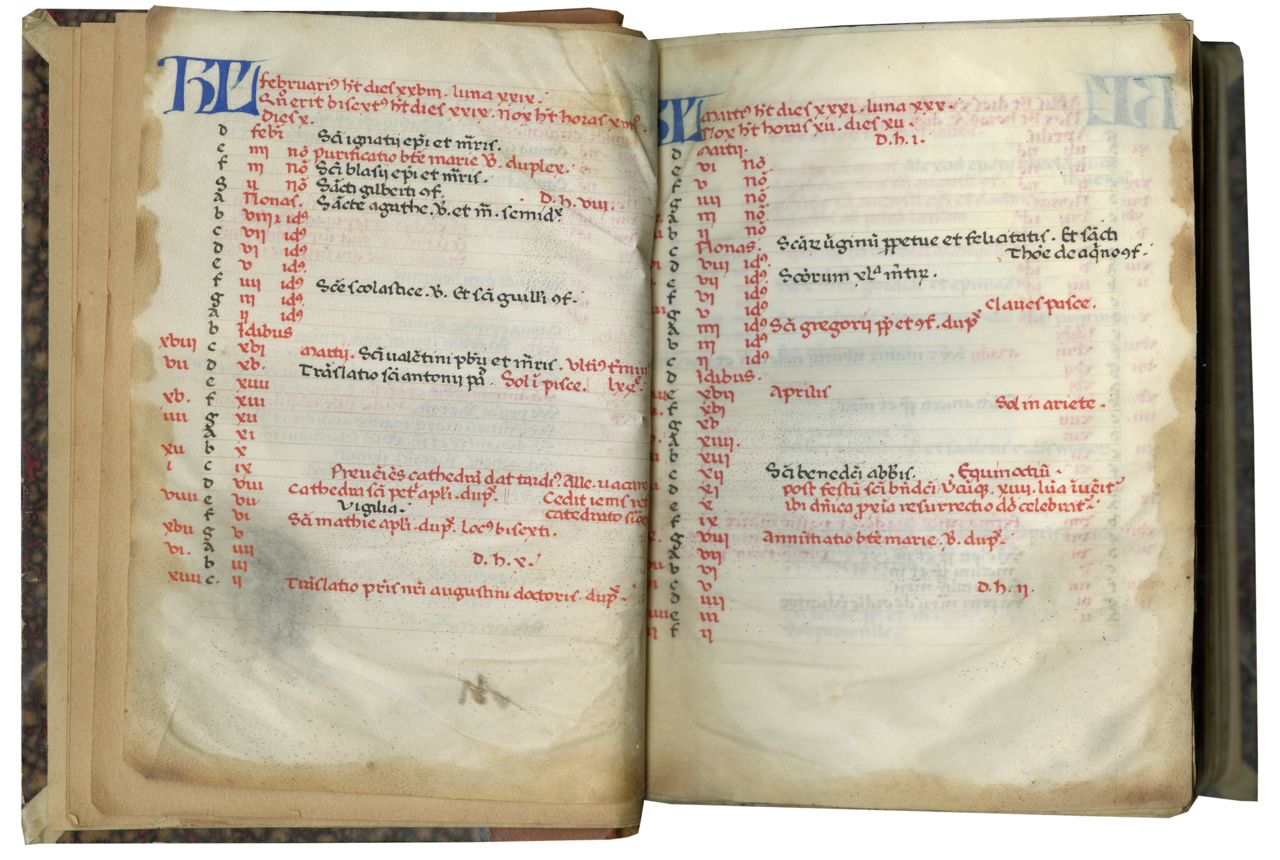 KL februari9 h̄t dies xxviii . luna xxix .
Sn̄ erit bisext9 h̄t dies xxix . Nox h̄t horas x
Dies x .
d febr̄ Sc̄i ignatii ep̄i et m̄ris .
e iiii no9 Purificatio bt̄e marie v̄ . duplex .
f iii no9 Sc̄i blasii ep̄i et m̄ris .
g ii no9 Sāct̄i gilberti 9f . D . h . viii .
a Nonas . Sāct̄e agathe . v̄ . et m̄ . semidx̄
b viii id9
c vii id9
d vi id9
e v id9
f iiii id9 Sc̄e scolastice . v̄ . Et sc̄i guill̄i 9f .
g iii id9
a ii id9
b Idibus
xviii c xvi martii . Sc̄i ualētini pb̄ri et m̄ris . Vlti9
vii d xv . Trāslatio sc̄i antonii pā . Sol ī pisce . lxx
e xiiii
xv . f xiii
iiii g xii
a xi
xii b x
i c ix
d viii Cathedra sc̄i pet̄ apl̄i . dupx̄ . Cedit iems
viiii e vii Vigilia . catedrato
f vi Sc̄i mathie apl̄i . dupx̄ . Loc9 bisexti .
xvii g v
vi . a iiii
b iii D . h . x .
xiiii c . ii Trāslatio pr̄is nr̄i augustini doctoris . dupx̄ .
KL martī9 h̄t dies xxxi . luna xxx .
Nox h̄t horas xii . dies xii .
d Martii . D . h . i .
e vi no9
f v no9
g iiii no9
a iii no9
b ii no9
c Nonas . Sc̄ar̄ v̄ginū p̄petue et felicitatis . Et sāct̄i
Thōe de aq̄no 9f .
d viii id9
e vii id9 Sc̄orum xl m̄tir̄ .
f vi id9
g v id9 Claues pasce .
a iiii id9 Sc̄i gregorii p̄p̄ et 9f . dupx̄
b iii id9
c ii id9
d Idibus .
e xvii Aprilis
f xvi Sol in ariete .
g xv
a xiiii .
b xiii
c xii Sc̄i benedc̄i abb̄is . Equinoctiū .
d xi post festū sc̄i bn̄dc̄i xiiii . lūa
e x ibi dn̄ica resurrectio celebrat̄ .
f ix
g viii Annūtiatio bt̄e marie . v̄ . dupx̄ .
a vii
b vi
c v D . h . ii .
d iiii
e iii
f ii